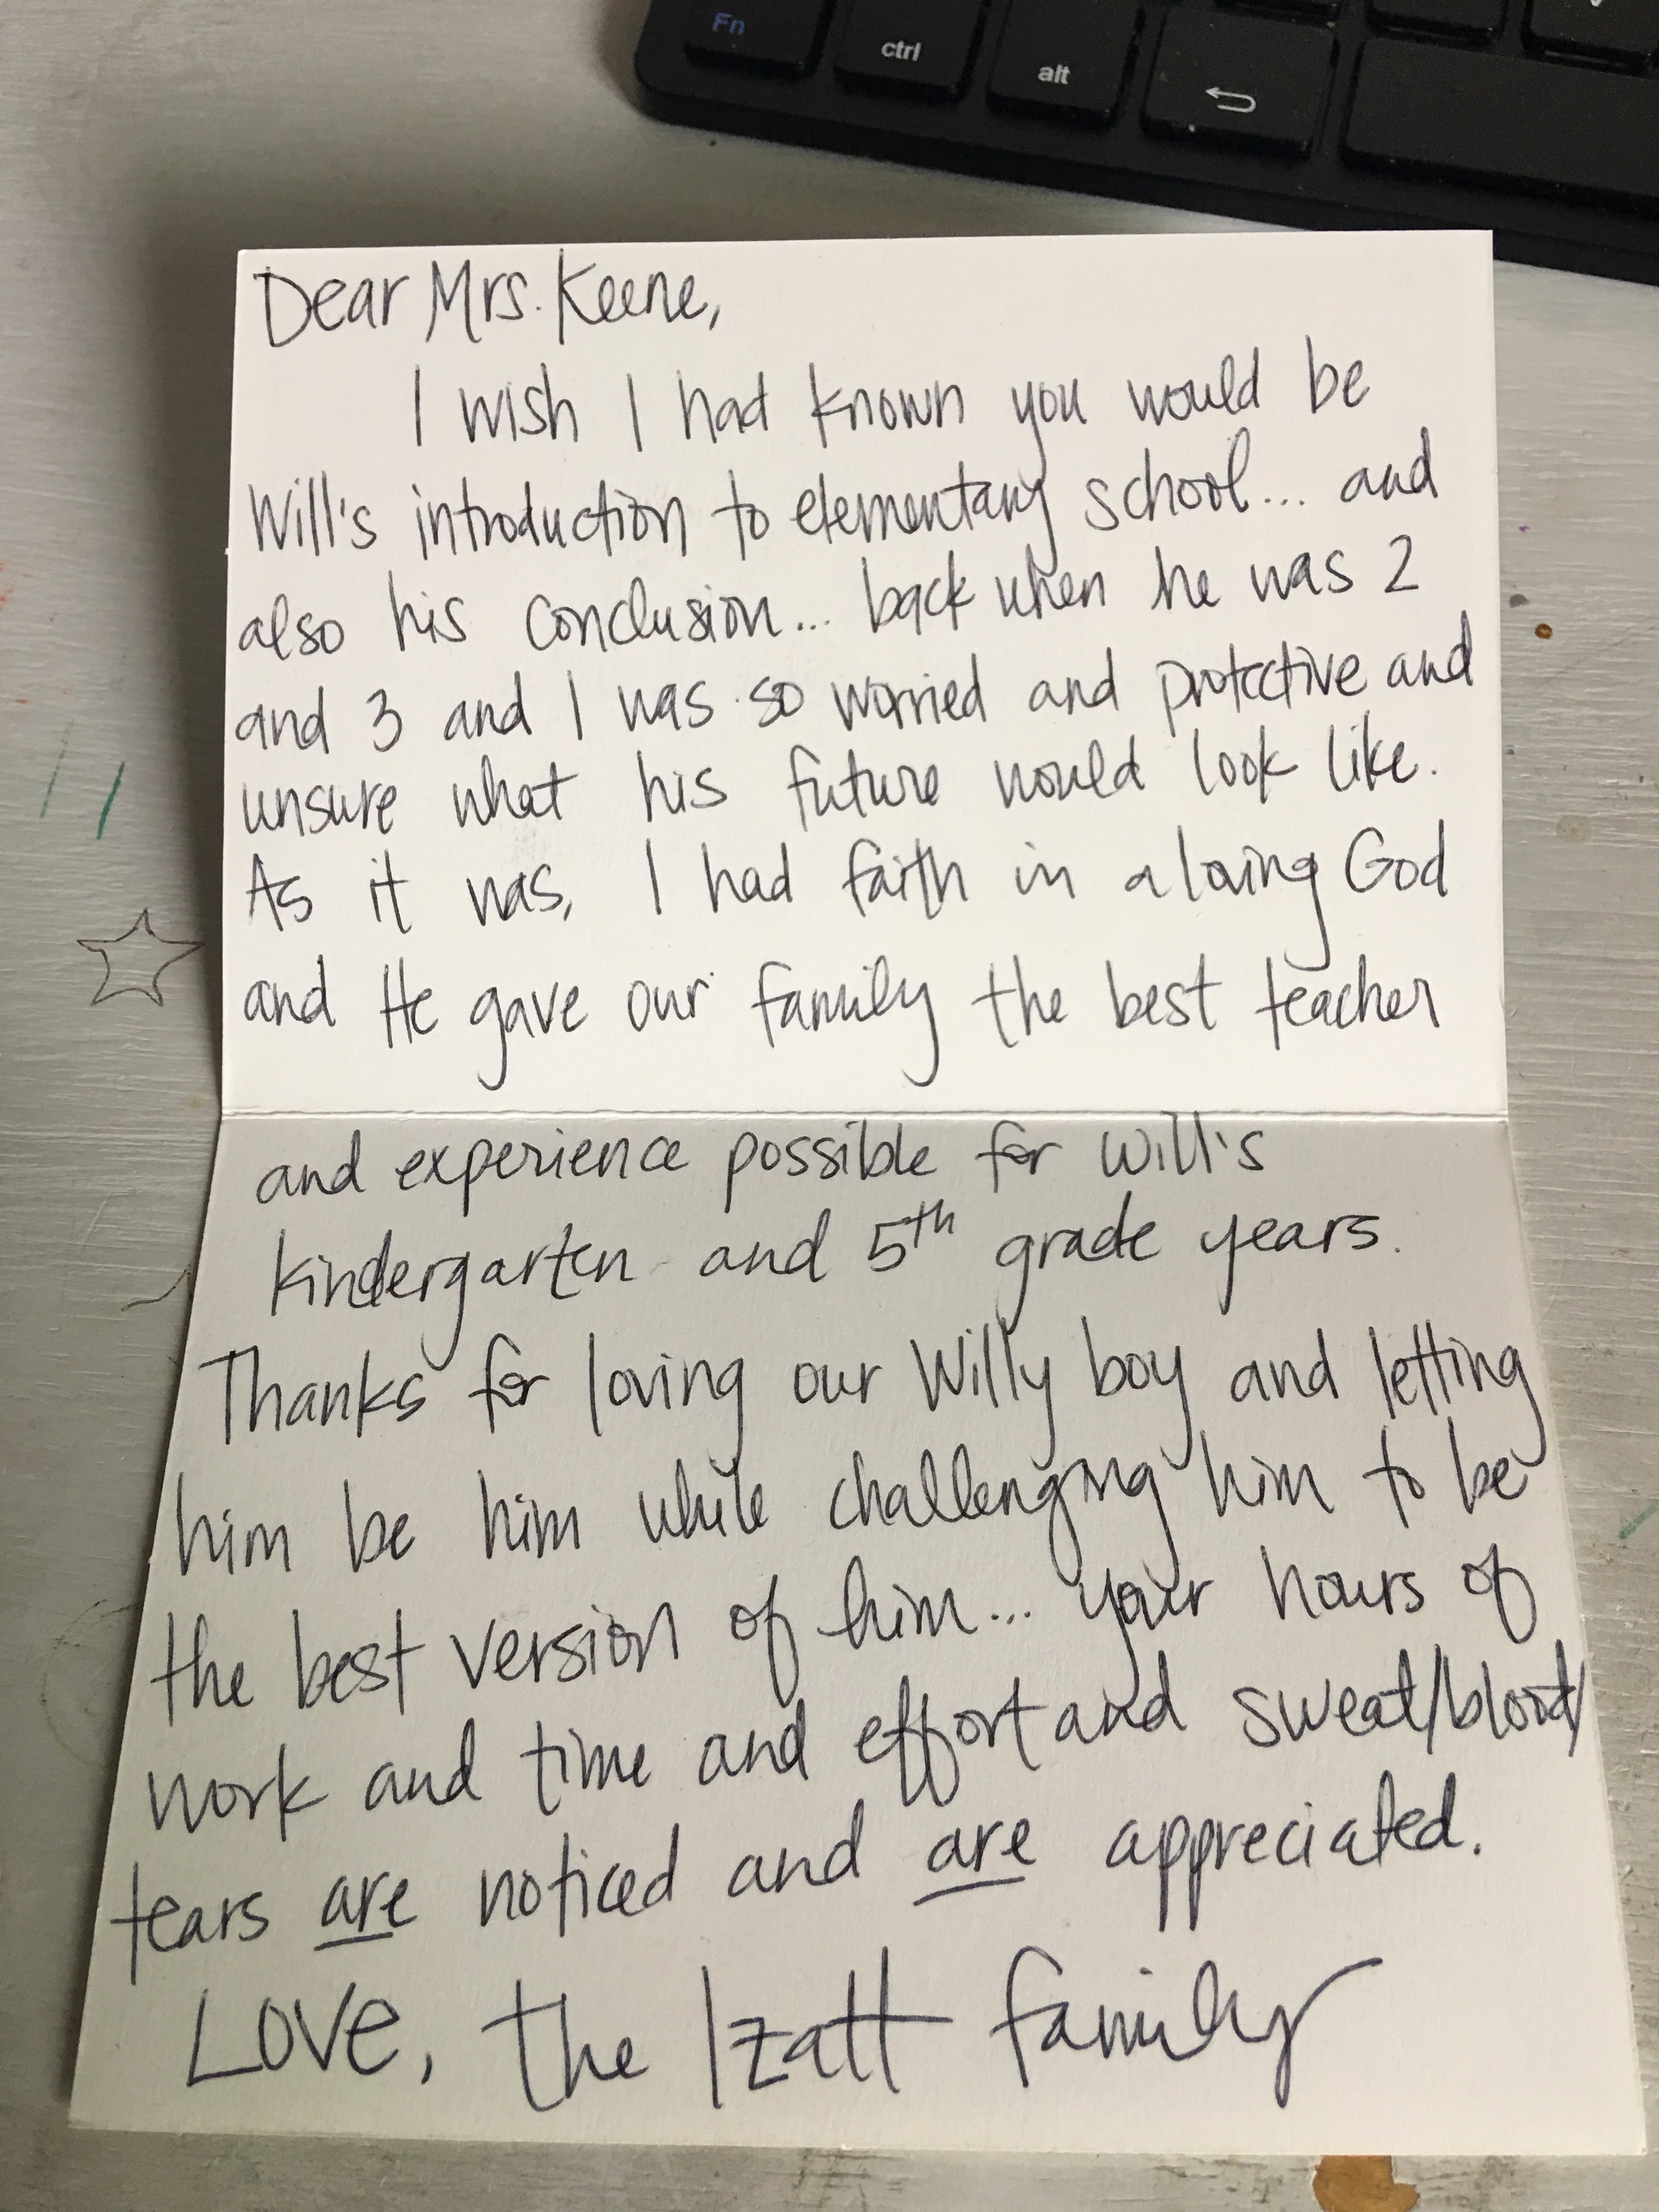 Fn
ctrl
alt
Dear Mrs. Keene,
I wish I had known you would be
Will's introduction to elementary school... and
also his conclusion... back when he was 2
and 3 and I was so worried and protective and
unsure what his future would look like.
As it was, I had faith in a loving God
and He gave our family the best teacher
and experience possible for Will's
kindergarten and 5th grade years.
Thanks for loving our Willy boy and letting
him be him while challenging him to be
the best version of him... your hours of
work and time and effort and sweat/blood/
tears are noticed and are appreciated.
Love, the Izatt family